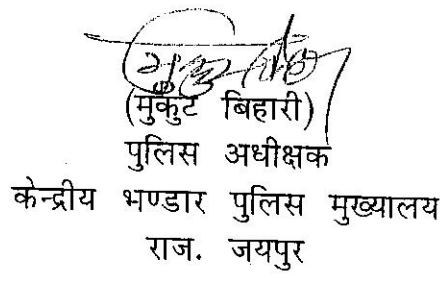 (मुकुट बिहारी)
पुलिस अधीक्षक
केन्द्रीय भण्डार पुलिस मुख्यालय
राज. जयपुर